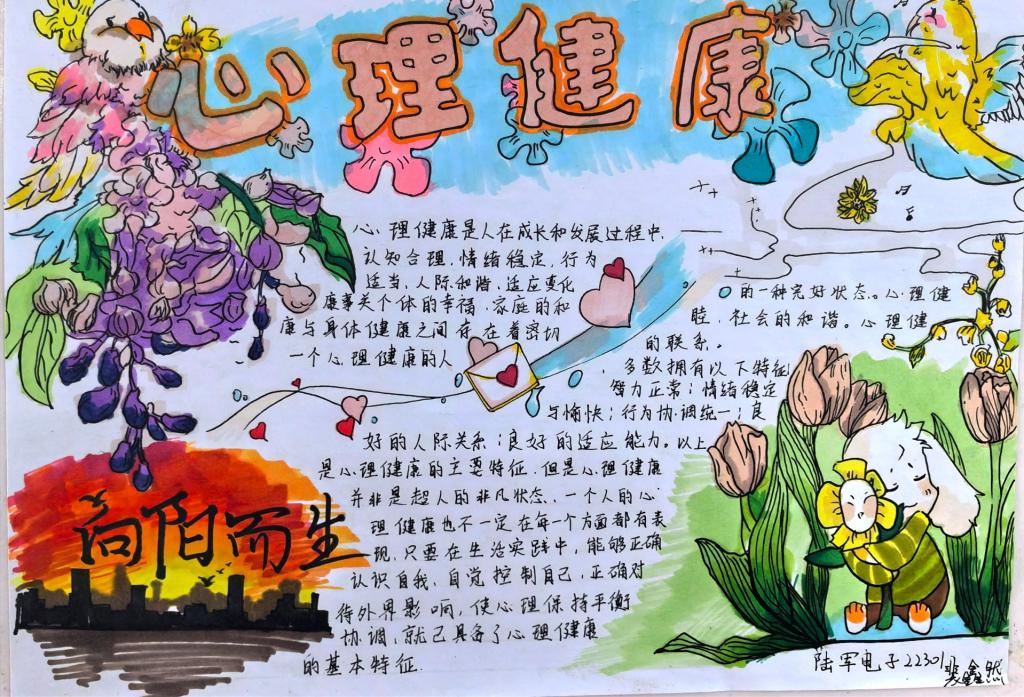 心理健康
心理健康是人在成长和发展过程中,
认知合理,情绪稳定,行为
适当,人际和谐,适应变化
的一种完好状态。心理健
康事关个体的幸福,家庭的和
睦,社会的和谐。心理健
康与身体健康之间存在着密切
的联系。
一个心理健康的人
多数拥有以下特征
智力正常;情绪稳定
与愉快;行为协调统一;良
好的人际关系;良好的适应能力。以上
是心理健康的主要特征,但是心理健康
并非是超人的非凡状态,一个人的心
理健康也不一定在每一个方面都有表
现,只要在生活实践中,能够正确
认识自我,自觉控制自己,正确对
待外界影响,使心理保持平衡
协调,就已具备了心理健康
的基本特征.
向阳而生
陆军电子22301裴鑫然